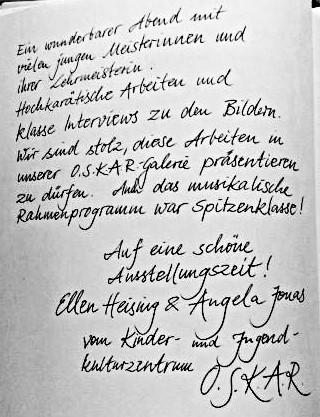 Ein wunderbarer Abend mit
vielen jungen Meisterinnen und
ihrer Lehrmeisterin.
Hochkarätische Arbeiten und
klasse Interviews zu den Bildern.
Wir sind stolz, diese Arbeiten in
unserer O.S.K.A.R.-Galerie präsentieren
zu dürfen. Auch das musikalische
Rahmenprogramm war Spitzenklasse!
Auf eine schöne
Ausstellungszeit!
Ellen Heising & Angela Jonas
vom Kinder- und Jugend-
kulturzentrum
O.S.K.A.R.